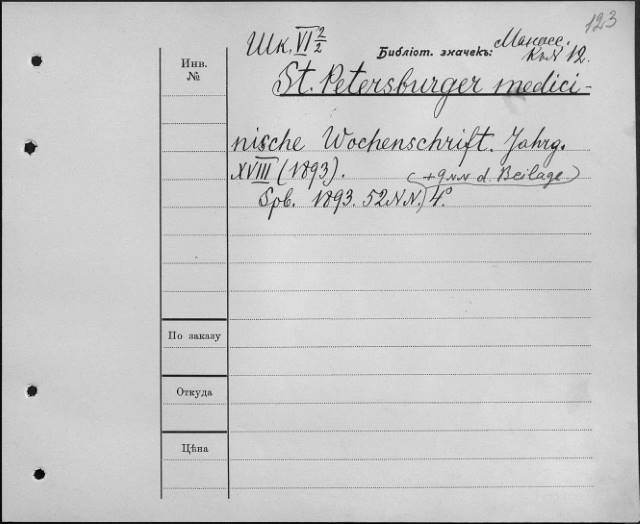 123
Шк. VI 2/2
Библіот. значекъ: Манасс.
К. N 12.
Инв.
№
St. Petersburger medici-
nische Wochenschrift. Jahrg.
XVIII (1893).
(+9 NN d. Beilage.)
Spb. 1893. 52 NN. 4°.
По заказу
Откуда
Цѣна